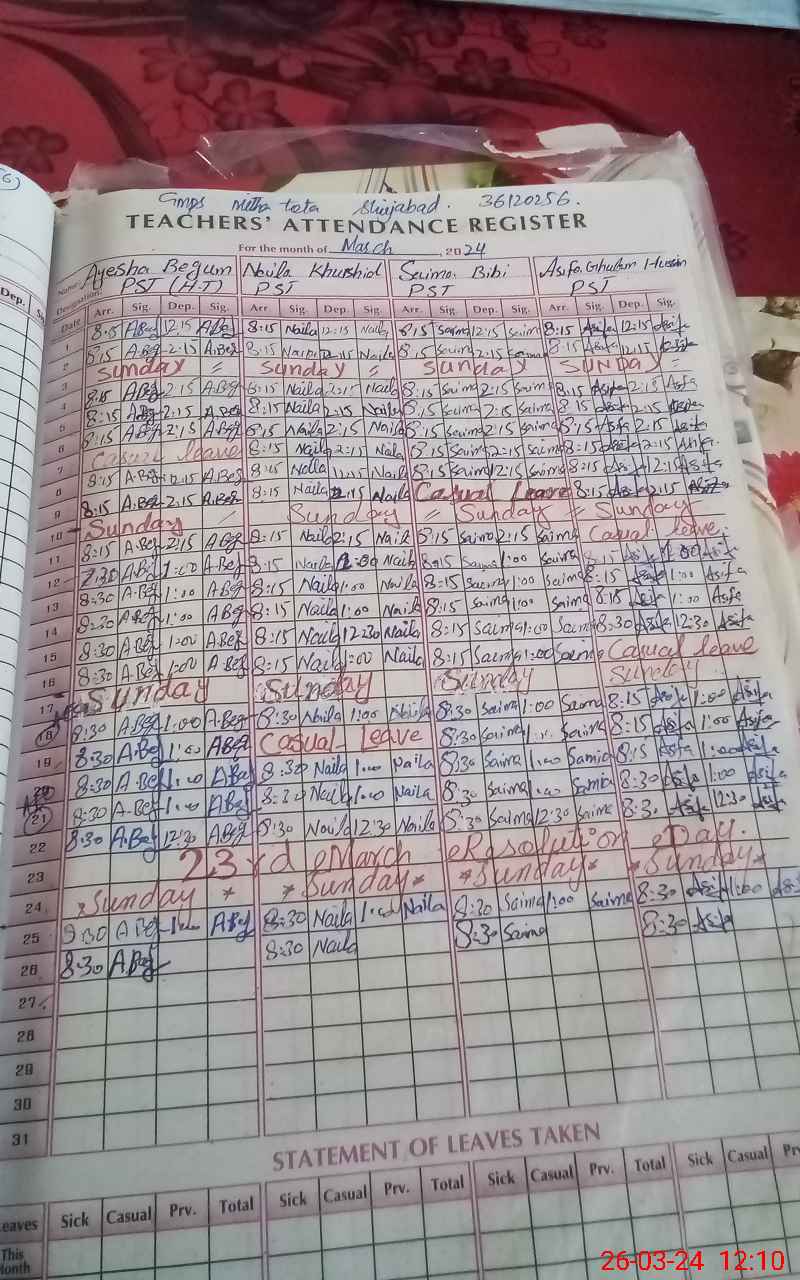 Gmps Mitha tota Shujabad. 36120256.
TEACHERS' ATTENDANCE REGISTER
For the month of March, 2024
Name Ayesha Begum Naila Khurshid Saima Bibi Asifa Ghulam Hussin
Designation PST (H.T) PST PST PST
Date Arr. Sig. Dep. Sig. Arr. Sig. Dep. Sig. Arr. Sig. Dep. Sig. Arr. Sig. Dep. Sig.
1 8:15 ABeg 12:15 ABeg 8:15 Naila 12:15 Naila 8:15 Saima 12:15 Saima 8:15 Asifa 12:15 Asifa
2 8:15 A.Beg 2:15 A.Beg 8:15 Naila 2:15 Naila 8:15 Saima 2:15 Saima 8:15 Asifa 12:15 Asifa
3 Sunday = Sunday = Sunday = Sunday =
4 8:15 ABeg 2:15 A.Beg 8:15 Naila 2:15 Naila 8:15 Saima 2:15 Saima 8:15 Asifa 2:15 Asfa
5 8:15 ABeg 2:15 A.Beg 8:15 Naila 2:15 Naila 8:15 Saima 2:15 Saima 8:15 Asifa 2:15 Asifa
6 8:15 A.Beg 2:15 A.Beg 8:15 Naila 2:15 Naila 8:15 Saima 2:15 Saima 8:15 Asifa 2:15 Asifa
7 Casual leave 8:15 Naila 2:15 Naila 8:15 Saima 2:15 Saima 8:15 Asifa 2:15 Asifa
8 8:15 A.Beg 12:15 A.Beg 8:15 Naila 12:15 Naila 8:15 Saima 12:15 Saima 8:15 Asifa 12:15 Asifa
9 8:15 A.Beg 2:15 A.Beg 8:15 Naila 2:15 Naila Casual Leave 8:15 Asifa 2:15 Asifa
10 Sunday = Sunday = Sunday = Sunday
11 8:15 A.Beg 2:15 A.Beg 8:15 Naila 2:15 Naila 8:15 Saima 2:15 Saima Casual leave
12 7:30 ABeg 1:00 A.Beg 8:15 Naila 1:00 Naila 8:15 Saima 1:00 Saima 8:15 Asifa 1:00 Asifa
13 8:30 A.Beg 1:00 A.Beg 8:15 Naila 1:00 Naila 8:15 Saima 1:00 Saima 8:15 Asifa 1:00 Asifa
14 8:30 ABeg 1:00 ABeg 8:15 Naila 1:00 Naila 8:15 Saima 1:00 Saima 8:15 Asifa 1:00 Asfa
15 8:30 A.Beg 1:00 A.Beg 8:15 Naila 12:30 Naila 8:15 Saima 1:00 Saima 8:30 Asifa 12:30 Asifa
16 8:30 A.Beg 1:00 A.Beg 8:15 Naila 1:00 Naila 8:15 Saima 1:00 Saima Casual leave
17 Sunday Sunday Sunday Sunday
18 8:30 ABeg 1:00 A.Beg 8:30 Naila 1:00 Naila 8:30 Saima 1:00 Saima 8:15 Asifa 1:00 Asifa
19 8:30 A.Beg 1:00 ABeg Casual Leave 8:30 Saima 1:00 Saima 8:15 Asifa 1:00 Asifa
20 8:30 A.Beg 1:00 ABeg 8:30 Naila 1:00 Naila 8:30 Saima 1:00 Samia 8:15 Asfa 1:00 Asifa
21 8:30 A.Beg 1:00 ABeg 8:30 Naila 1:00 Naila 8:30 Saima 1:00 Samia 8:30 Asifa 1:00 Asifa
22 8:30 A.Beg 12:30 ABeg 8:30 Naila 12:30 Naila 8:30 Saima 12:30 Saima 8:30 Asifa 12:30 Asifa
23 23rd March Resolution Day.
24 *Sunday * *Sunday* *Sunday* *Sunday*
25 8:30 ABeg 1:00 ABeg 8:30 Naila 1:00 Naila 8:30 Saima 1:00 Saima 8:30 Asifa 1:00 Asifa
26 8:30 A.Beg 8:30 Naila 8:30 Saima 8:30 Asifa
27
28
29
30
31
STATEMENT OF LEAVES TAKEN
Leaves Sick Casual Prv. Total Sick Casual Prv. Total Sick Casual Prv. Total Sick Casual
This Month
26-03-24 12:10